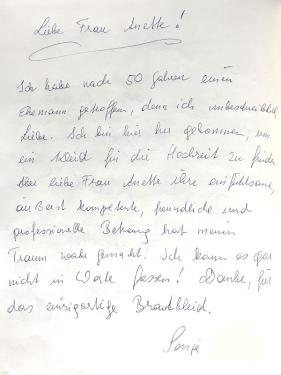 Liebe Frau Anette!
Ich habe nach 50 Jahren einen
Ehemann getroffen, denn ich unbeschreiblich
Liebe. Ich bin hier her gekommen, um
ein Kleid für die Hochzeit zu finden
Aber liebe Frau Anette ihre einfühlsame,
äußerst kompetente, freundliche und
professionelle Betreung hat meinen
Traum wahr gemacht. Ich kann es gar
nicht in Worte fassen! Danke, für
das einzigartige Brautkleid.
Sonja